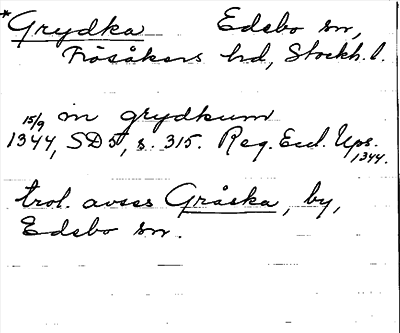 *Grydka Edebo sn,
Frösåkers hd, Stockh. l.
15/9 in grydkum
1344, SD 5, s. 315. Reg. Eccl. Ups.
1344.
trol. avses Gråska, by,
Edebo sn.